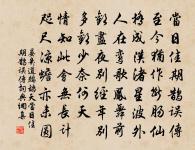 當日佳期鵲誤傳
至今猶作斷腸仙
橋成漢渚星波外
人在鸞歌鳳舞前
歡盡夜別經年別
多歡少奈何天
情知此會無長計
咫尺涼蟾亦未圓
晏幾道鷓鴣天當日佳
期鵲誤傳詞典